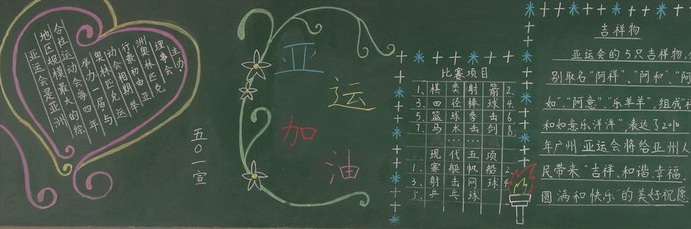 亚运会是亚洲
地区规模最大的综
合性运动会每四年
举办一届与
奥林匹克运
动会相期举
行最初由亚
洲奥林匹克
理事会
主办
五〇一宣
亚
运
加
油
比赛项目
1、棋类 射箭 2、
3、田径 排球 4、
5、篮球 拳击 6、
7、马术 击剑 8、
……
现代五项
1、赛艇 帆船
3、射击 网球
5、乒乓球
吉祥物
亚运会的5只吉祥物,
别取名“阿祥”、“阿和”、“阿
如”、“阿意”、“乐羊羊”,组成
和如意乐洋洋”,表达了2010
年广州亚运会将给亚洲人
民带来“吉祥、和谐、幸福、
圆满和快乐”的美好祝愿